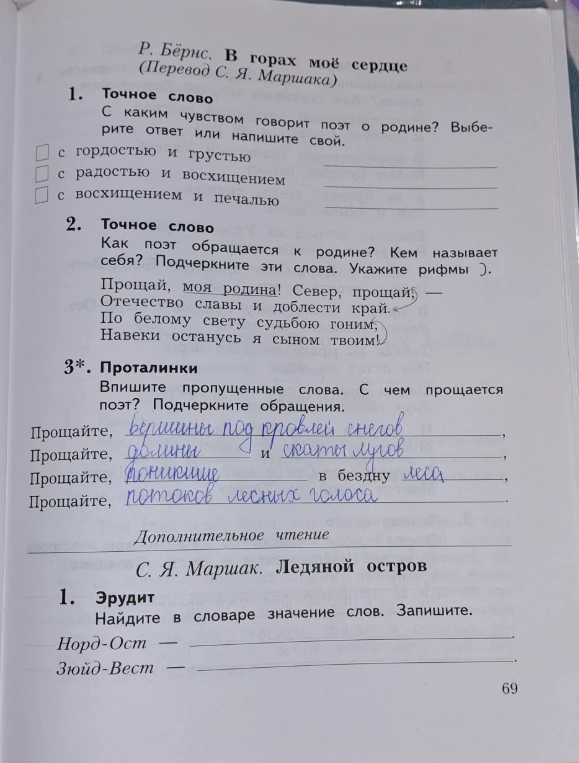 Р. Бёрнс. В горах моё сердце
(Перевод С. Я. Маршака)
1. Точное слово
С каким чувством говорит поэт о родине? Выбе-
рите ответ или напишите свой.
с гордостью и грустью
с радостью и восхищением
с восхищением и печалью
2. Точное слово
Как поэт обращается к родине? Кем называет
себя? Подчеркните эти слова. Укажите рифмы ).
Прощай, моя родина! Север, прощай, —
Отечество славы и доблести край.
По белому свету судьбою гоним,
Навеки останусь я сыном твоим!
3*. Проталинки
Впишите пропущенные слова. С чем прощается
поэт? Подчеркните обращения.
Прощайте, вершины под кровлей снегов,
Прощайте, долины и скаты лугов,
Прощайте, поникшие в бездну леса,
Прощайте, потоков лесных голоса.
Дополнительное чтение
С. Я. Маршак. Ледяной остров
1. Эрудит
Найдите в словаре значение слов. Запишите.
Норд-Ост — .
Зюйд-Вест — .
69